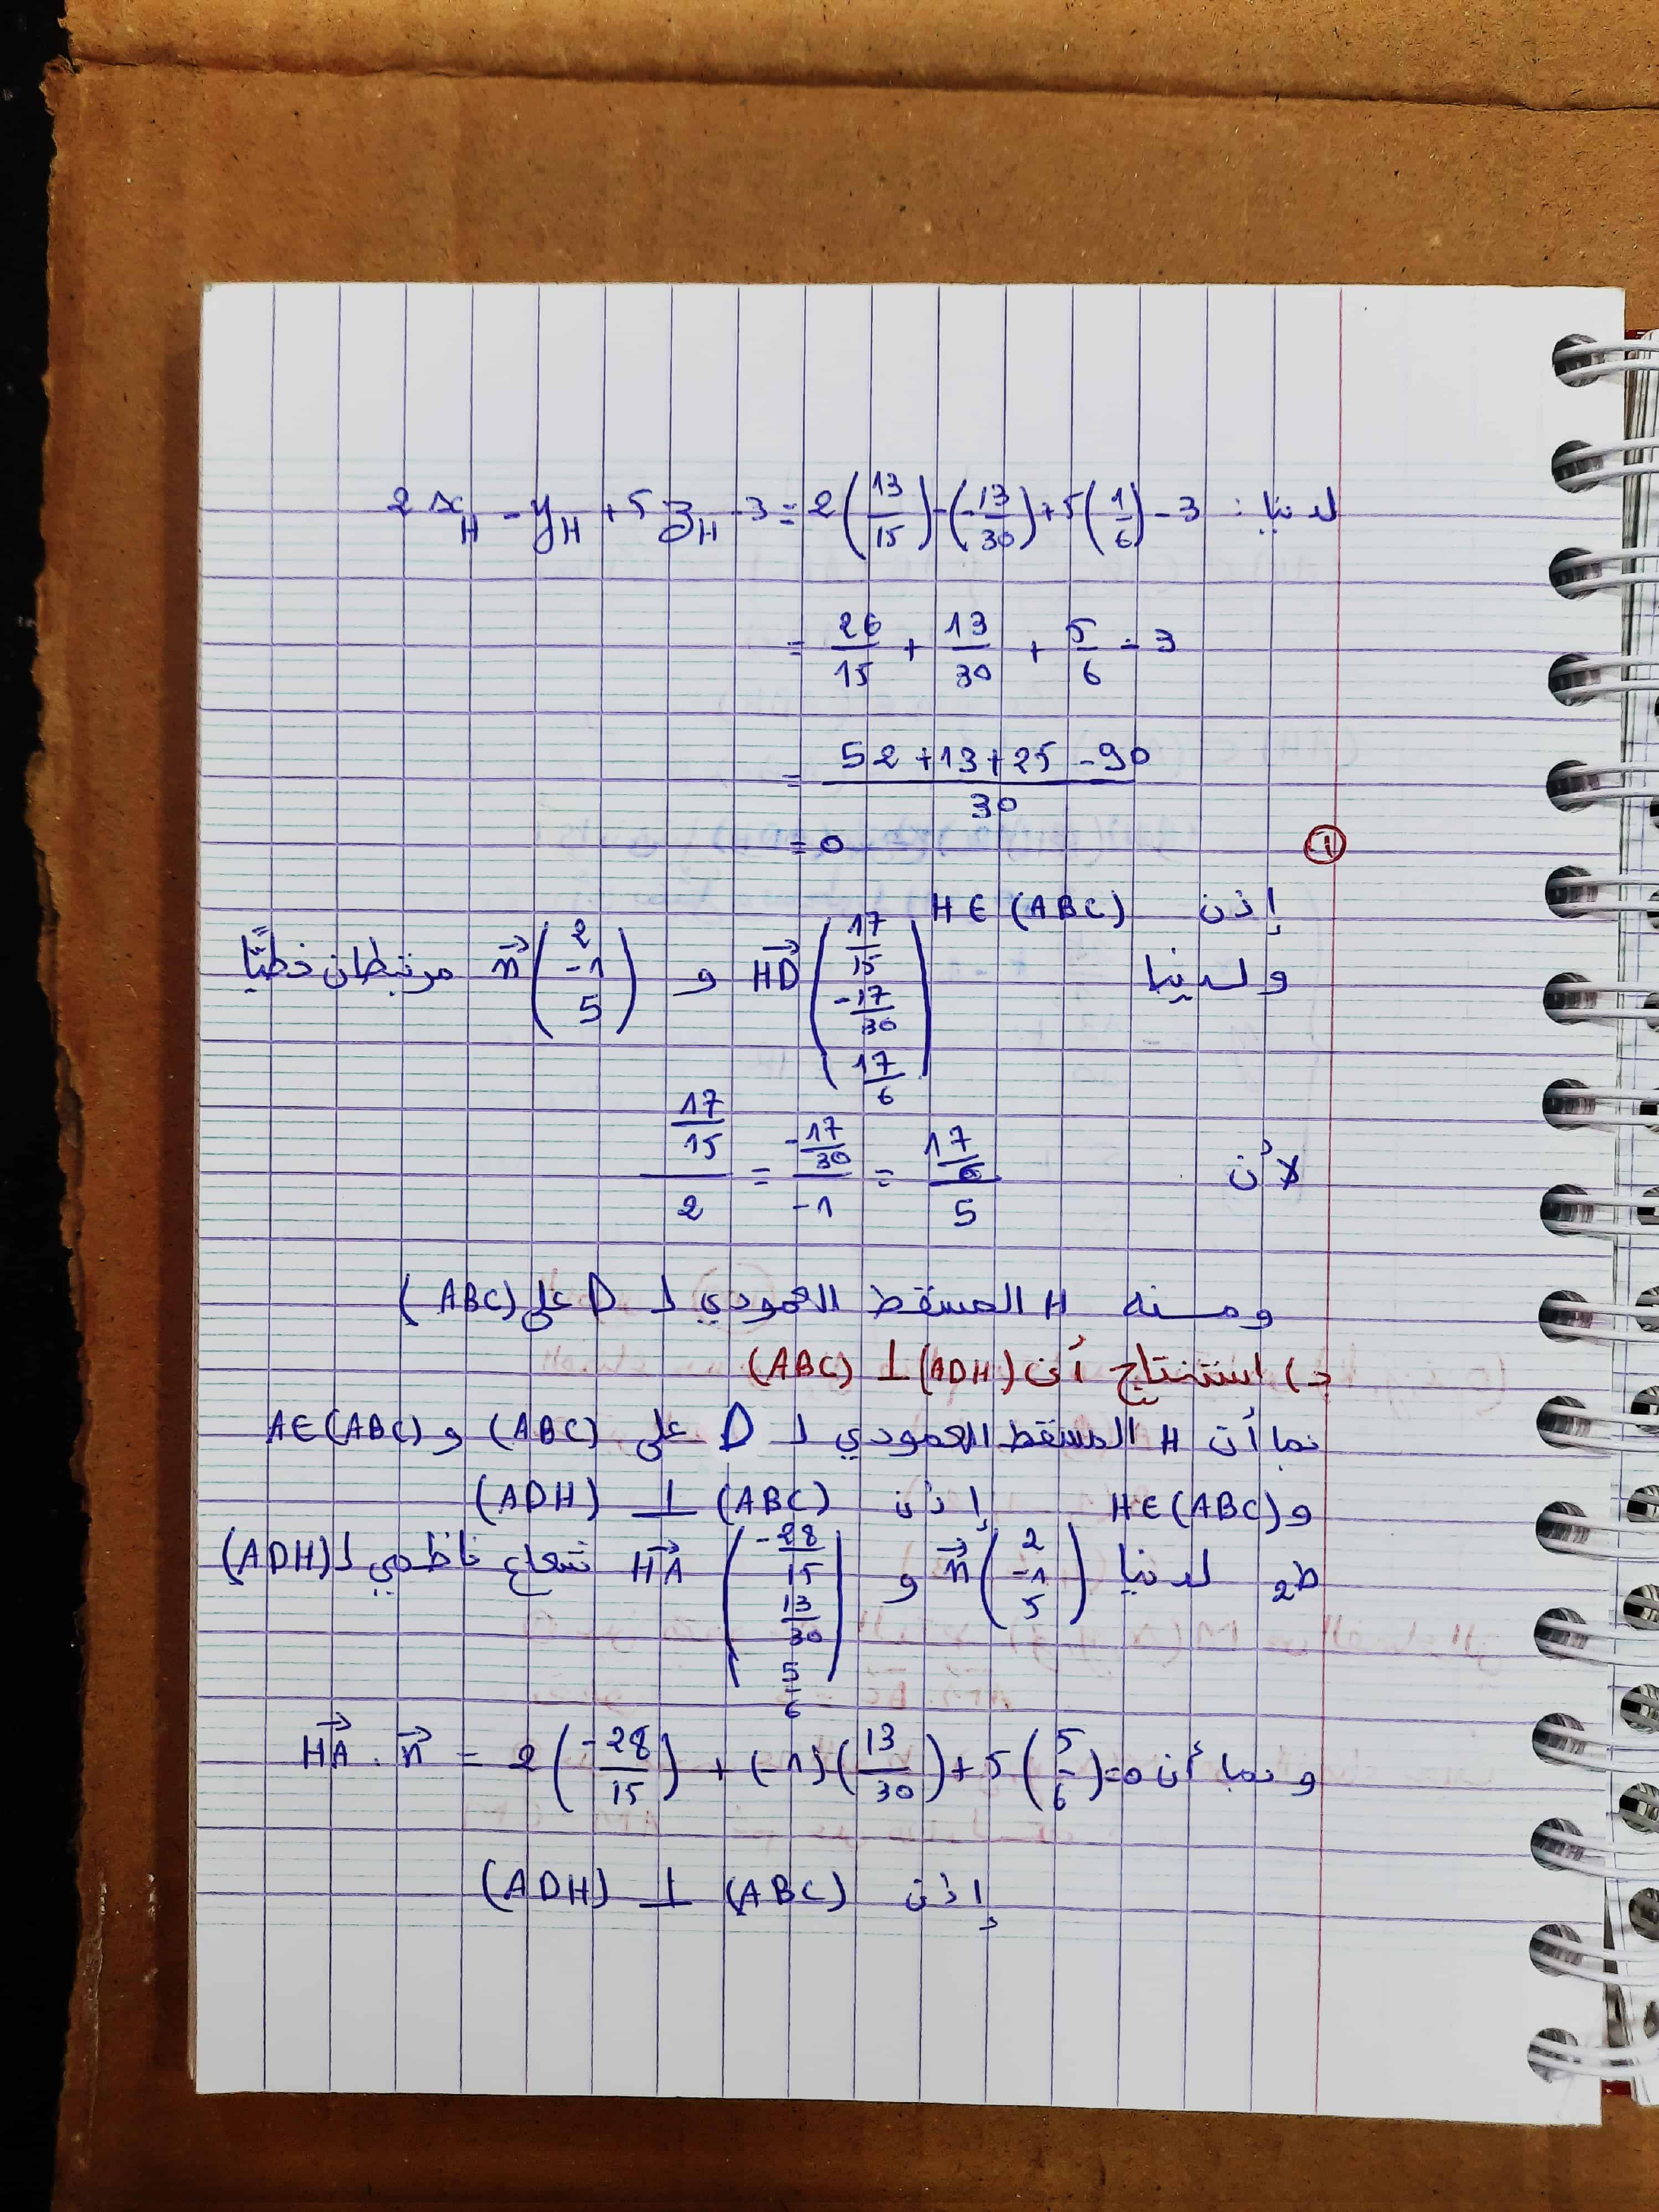 لدينا: 2x_H - y_H + 5z_H - 3 = 2(13/15) - (-13/30) + 5(1/6) - 3
= 26/15 + 13/30 + 5/6 - 3
= (52 + 13 + 25 - 90)/30
= 0
①
إذن H∈(ABC)
ولدينا HD→(17/15 ; -17/30 ; 17/6) و n→(2 ; -1 ; 5) مرتبطان خطيًّا
لأن (17/15)/2 = (-17/30)/-1 = (17/6)/5
ومنه H المسقط العمودي لـ D على (ABC)
د) استنتاج أن (ADH) ⊥ (ABC)
بما أن H المسقط العمودي لـ D على (ABC) و A∈(ABC)
و H∈(ABC) إذن (ADH) ⊥ (ABC)
ط2 لدينا n→(2 ; -1 ; 5) و HA→(-28/15 ; 13/30 ; 5/6) شعاع ناظمي لـ (ADH)
وبما أن HA→ . n→ = 2(-28/15) + (-1)(13/30) + 5(5/6) = 0
إذن (ADH) ⊥ (ABC)